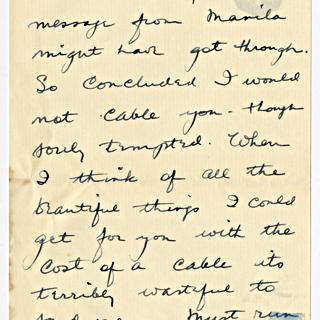 message from Manila
might have got through.
So concluded I would
not cable you - though
sorely tempted. When
I think of all the
beautiful things I could
get for you with the
cost of a cable its
terribly wasteful to
Must run